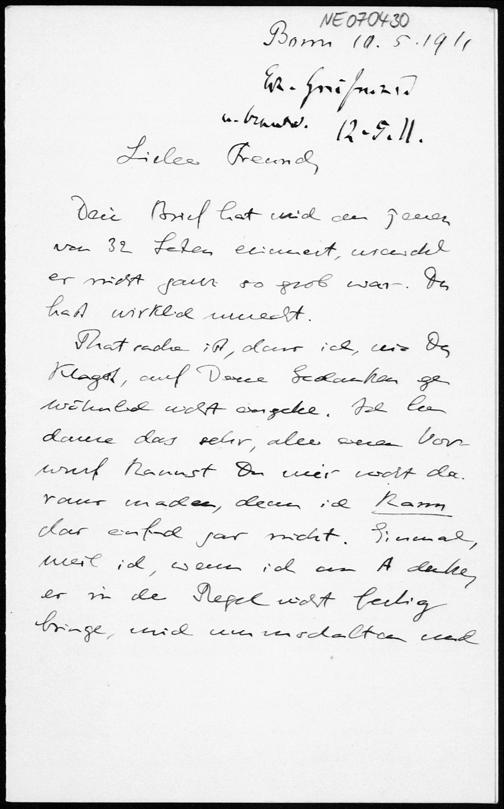 NE070430
Bonn 10.5.1911
Erh. Greifswald
u. beantw. 12.5.11.
Lieber Freund,
Dein Brief hat mich an jenen
von 32 Seiten erinnert, wiewohl
er nicht ganz so grob war. Du
hast wirklich unrecht.
Thatsache ist, dass ich, wie Du
klagst, auf Deine Gedanken ge
wöhnlich nicht eingehe. Ich be
daure das sehr, aber einen Vor-
wurf kannst Du mir nicht da-
raus machen, denn ich kann
das einfach gar nicht. Einmal,
weil ich, wenn ich an A denke,
es in der Regel nicht fertig
bringe, mich umzuschalten und